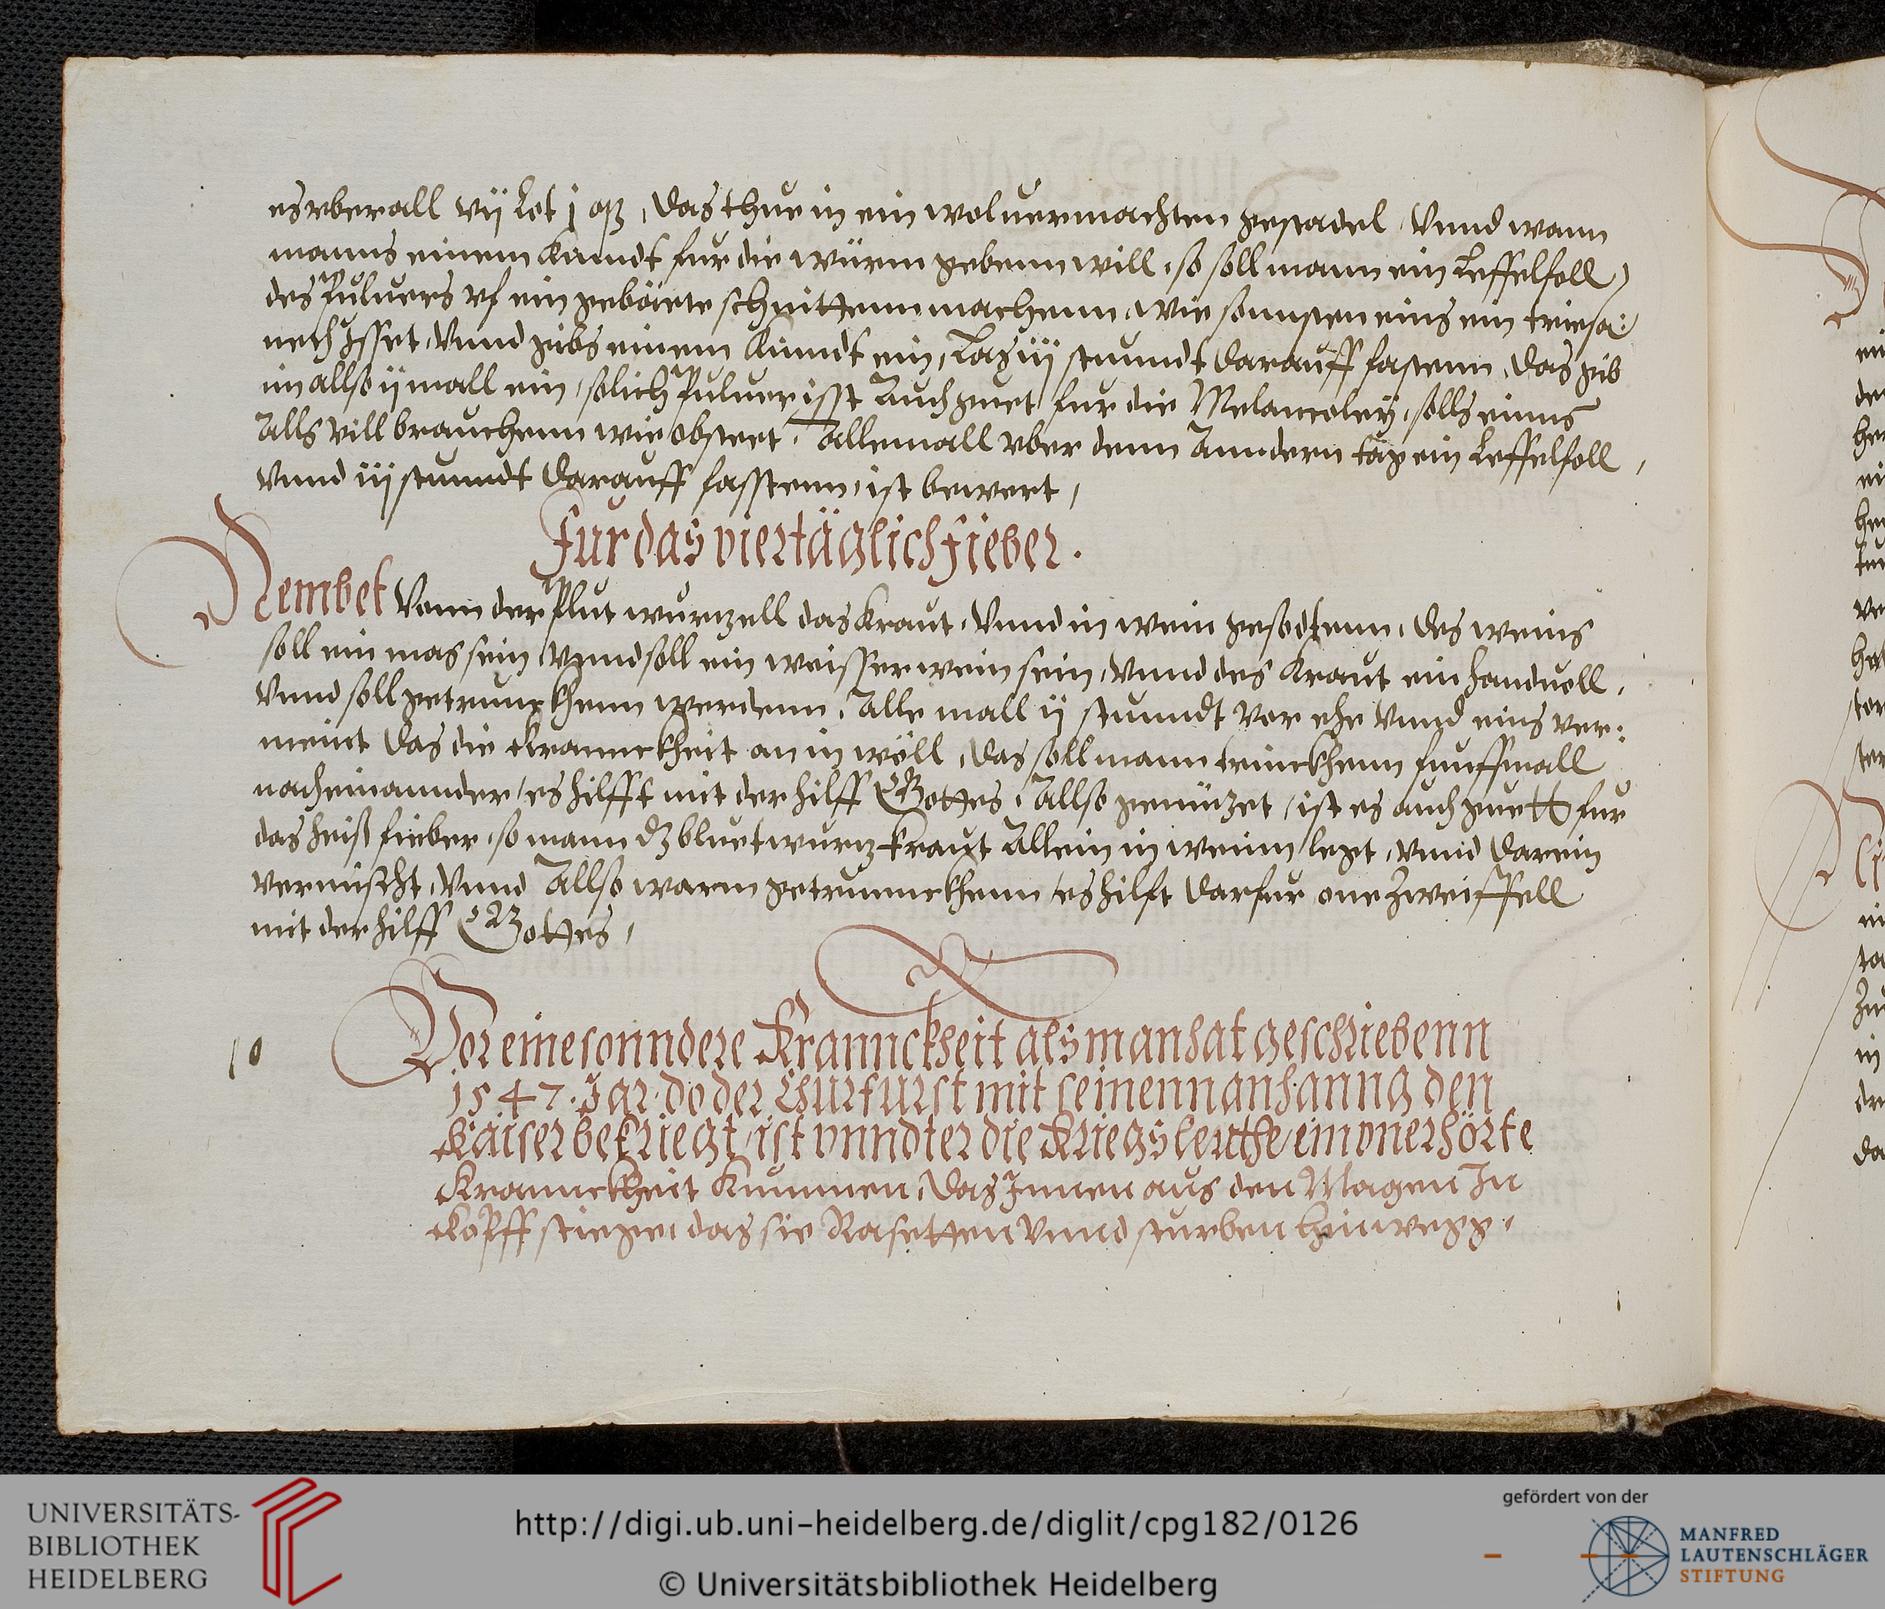 es vberall vij Lot j qz, das thue in ein woluermachten gestadel Vnnd wann
manns einem Kinndt fur die würm gebenn will, so soll mann ein Leffelfoll
des Puluers vf ein gebäete schnittenn machenn, wie sonnsten eins ein triesa:
nech Isset, Vnnd gibs einem Kinndt ein, Las iij stunndt darauff fastenn, das gib
im allso ij mall ein, solich Puluer isst Auch guet fur die Melancoley, solls einns
Alls vill brauchenn wie obsteet, Allemall vber denn Anndern tag ein Leffelfoll,
Vnnd iij stunndt darauff fasstenn, ist bewert,
Fur das viertäglich Fieber.
Nembet Vonn der Plut wurzell das Kraut, Vnnd in wein gesodtenn, des weins
soll ein mas sein, Vnnd soll ein weisser wein sein, Vnnd des Kraut ein handuoll,
Vnnd soll getrunckhenn werdenn, Alle mall ij stunndt vor ehe Vnnd eins ver:
meint das die Kranncktheit an in wöll, das soll mann trinckhenn funffmall
nacheinannder, es hilfft mit der hilff Gottes, Allso genützet, ist es auch guett fur
das heiß fieber, so mann dz bluetwurz kraut Allein in weinn legt, vnnd darein
vermischt, Vnnd Allso warm getrunnckhenn, es hilft darfur one Zweiffell
mit der hilff Gottes,
10
Vor eine sonndere Kranncktheit als man hat geschriebenn
1547. Jar do der Churfurst mit seinenn anhanng den
Kaiser bekriegt, ist vnndter die Kriegsleuthe ein vnerhörte
Kranncktheit Kummen, Das Innen aus den Magen In
Kopff stiege, das sie Rasetten Vnnd sturben hinwegg,
UNIVERSITÄTS-
BIBLIOTHEK
HEIDELBERG
http://digi.ub.uni-heidelberg.de/diglit/cpg182/0126
© Universitätsbibliothek Heidelberg
gefördert von der
MANFRED
LAUTENSCHLÄGER
STIFTUNG